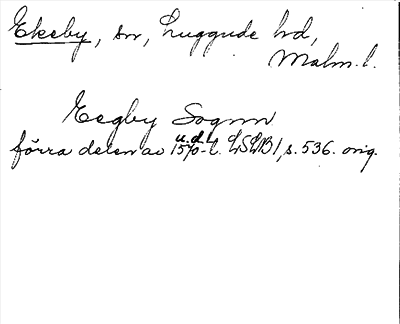 Ekeby, sn, Luggude hd,
Malm.l.
Eegby Sognn
u.d.
förra delen av 1570-t. LSLB 1, s. 536. orig.